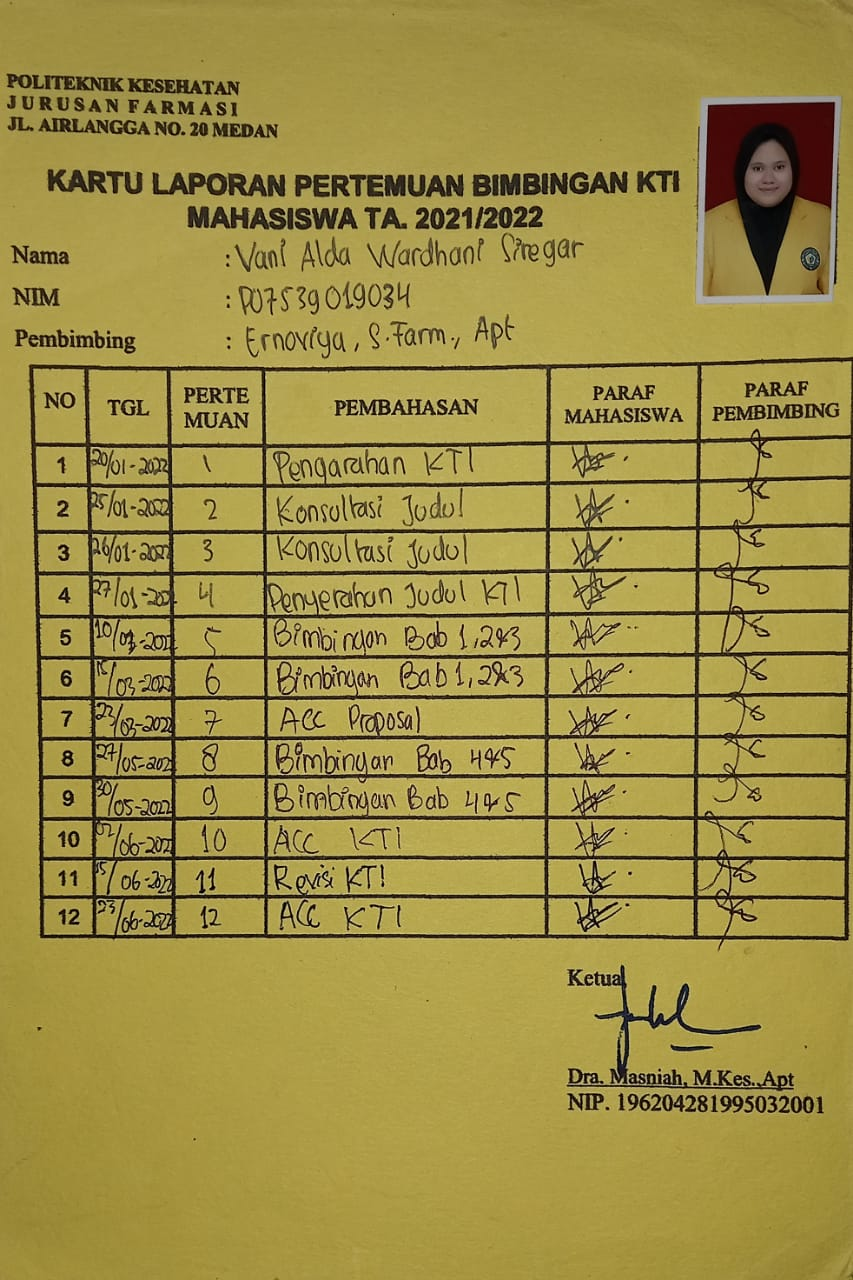 POLITEKNIK KESEHATAN
JURUSAN FARMASI
JL. AIRLANGGA NO. 20 MEDAN
KARTU LAPORAN PERTEMUAN BIMBINGAN KTI
MAHASISWA TA. 2021/2022
Nama : Vani Alda Wardhani Siregar
NIM : P07539019034
Pembimbing : Ernoviya, S.Farm., Apt
NO TGL PERTE MUAN PEMBAHASAN PARAF MAHASISWA PARAF PEMBIMBING
1 20/01-2022 1 Pengarahan KTI
2 25/01-2022 2 Konsultasi Judul
3 26/01-2022 3 Konsultasi Judul
4 27/01-202 4 Penyerahan Judul KTI
5 5 Bimbingan Bab 1,2&3
6 15/03-2022 6 Bimbingan Bab 1,2&3
7 23/03-2022 7 ACC Proposal
8 27/05-202 8 Bimbingan Bab 4&5
9 30/05-2022 9 Bimbingan Bab 4&5
10 02/06-2022 10 ACC KTI
11 15/06-2022 11 Revisi KTI
12 23/06-2022 12 ACC KTI
Ketua
Dra. Masniah, M.Kes.,Apt
NIP. 196204281995032001